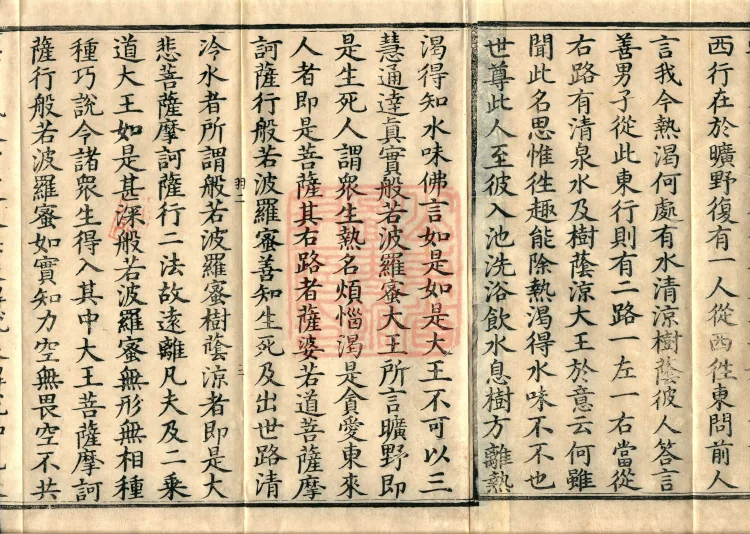 西行在於曠野復有一人從西徃東問前人
言我今熱渴何處有水清涼樹蔭彼人答言
善男子從此東行則有二路一左一右當從
右路有清泉水及樹蔭涼大王於意云何雖
聞此名思惟徃趣能除熱渴得水味不不也
世尊此人至彼入池洗浴飲水息樹方離熱
渴得知水味佛言如是如是大王不可以三
慧通達眞實般若波羅蜜大王所言曠野即
是生死人謂衆生熱名煩惱渴是貪愛東來
人者即是菩薩其右路者薩婆若道菩薩摩
訶薩行般若波羅蜜善知生死及出世路清
羽二 三
冷水者所謂般若波羅蜜樹蔭涼者即是大
悲菩薩摩訶薩行二法故遠離凡夫及二乘
道大王如是甚深般若波羅蜜無形無相種
種巧說令諸衆生得入其中大王菩薩摩訶
薩行般若波羅蜜如實知力空無畏空不共